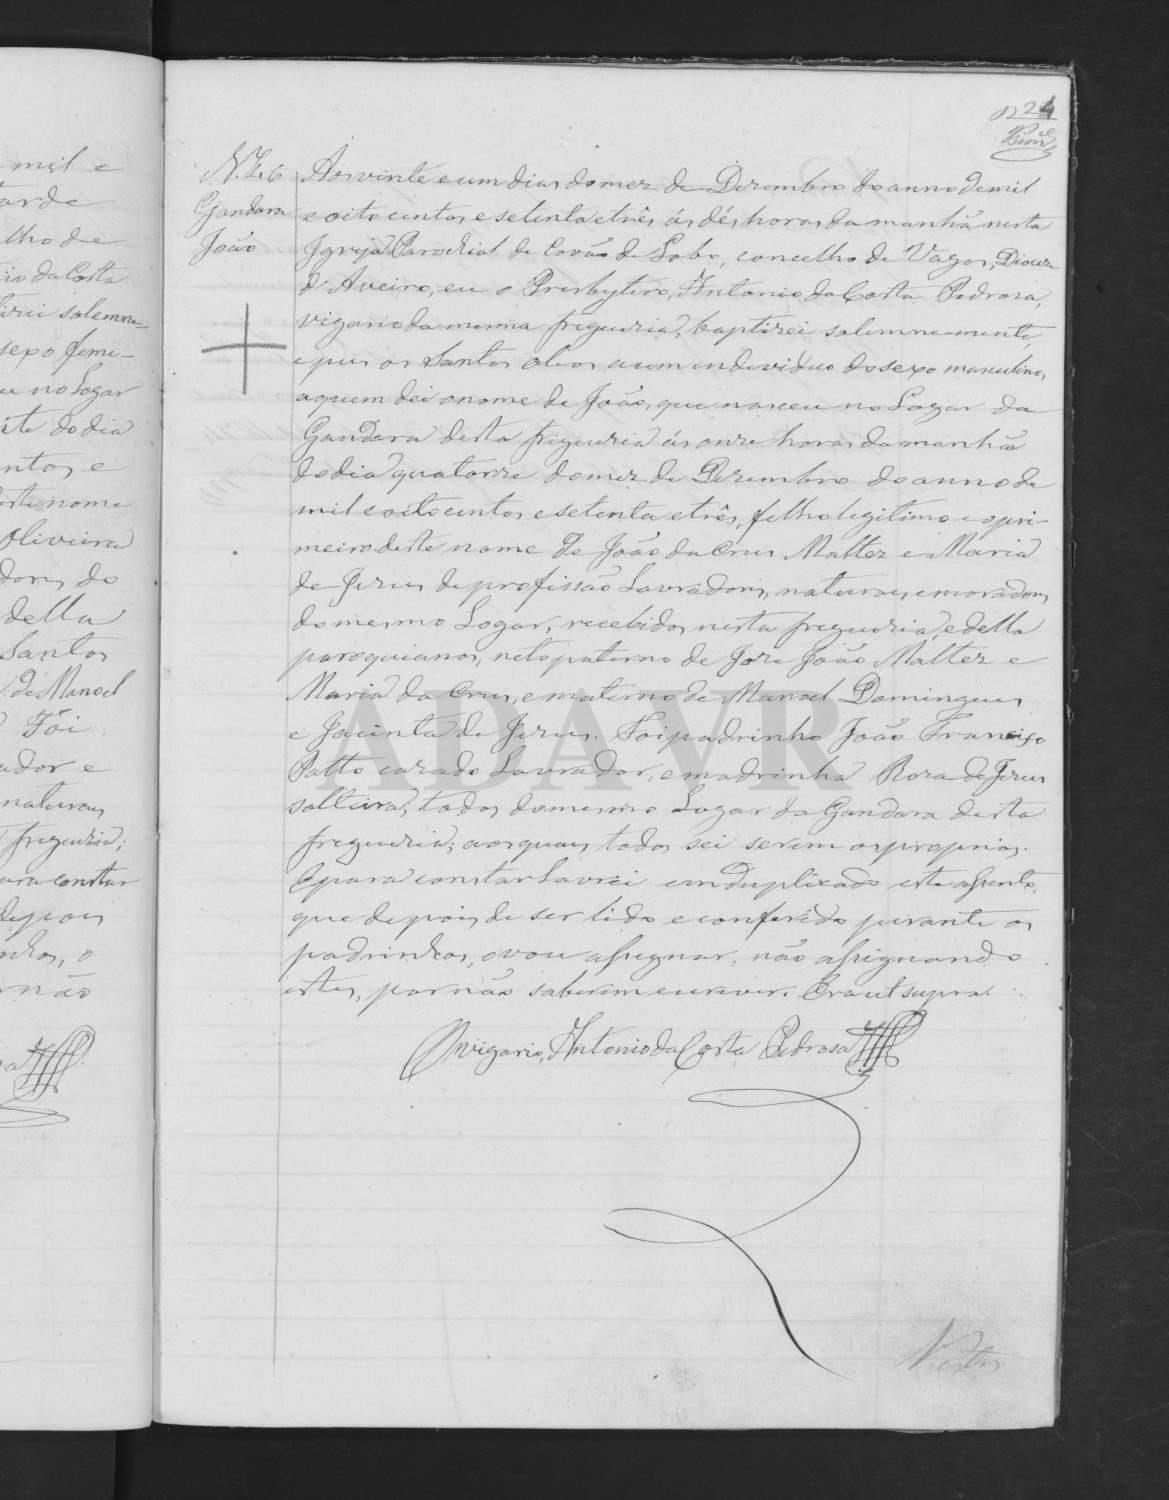 mil e
tarde
lho de
io da Costa
tizei solemne-
sexo femi-
eu no Logar
rte do dia
ntos e
deste nome
Oliveira
dores do
della
Santos
de Manoel
Foi
ador e
naturaes
freguezia;
ara constar
depois
nhos, o
não
24
N. 46
Gandara
João
Aos vinte e um dias do mez de Dezembro do anno de mil
e oito centos e setenta e três ás dés horas da manhã nesta
Igreja Parochial de Covão de Lobo, concelho de Vagos, Dioceze
d'Aveiro, eu o Presbytero, Antonio da Costa Pedrosa,
vigario da mesma freguezia, baptizei solemne-mente,
e pus os Santos oleos a um individuo do sexo masculino,
a quem dei o nome de João, que nasceu no Logar da
Gandara desta freguezia ás onze horas da manhã
do dia quatorze do mez de Dezembro do anno de
mil e oito centos e setenta e três, filho legitimo e o pri-
meiro deste nome de João da Crus Maltez e Maria
de Jezus de profissão Lavradores, naturaes e moradores
do mesmo Logar, recebidos nesta freguezia, e della
paroquianos, neto paterno de Joze João Maltez e
Maria da Crus, e materno de Manoel Domingues
e Jacinta de Jezus. Foi padrinho João Francisco
Patto cazado Lavrador, e madrinha Roza de Jezus
solteira, todos do mesmo Logar da Gandara desta
freguezia; aos quaes todos sei serem os proprios.
E para constar Lavrei em duplicado este assento,
que depois de ser lido e conferido perante os
padrinhos, o vou assignar, não assignando
estes, por não saberem escrever. Era ut supra.
O vigario, Antonio da Costa Pedrosa
ADAVR